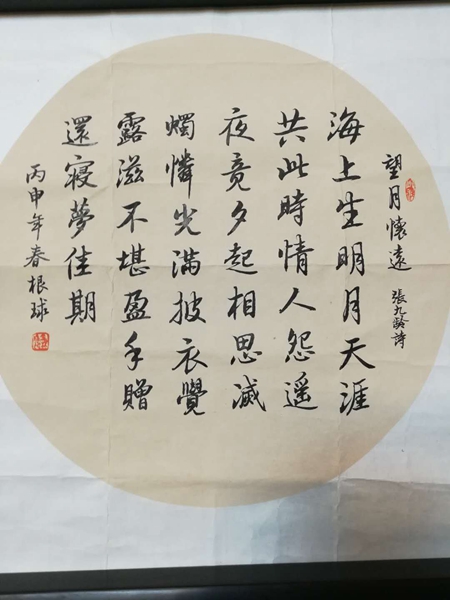 望月懷遠 張九齡詩
海上生明月天涯
共此時情人怨遥
夜竟夕起相思滅
燭憐光滿披衣覺
露滋不堪盈手贈
還寢夢佳期
丙申年春根球